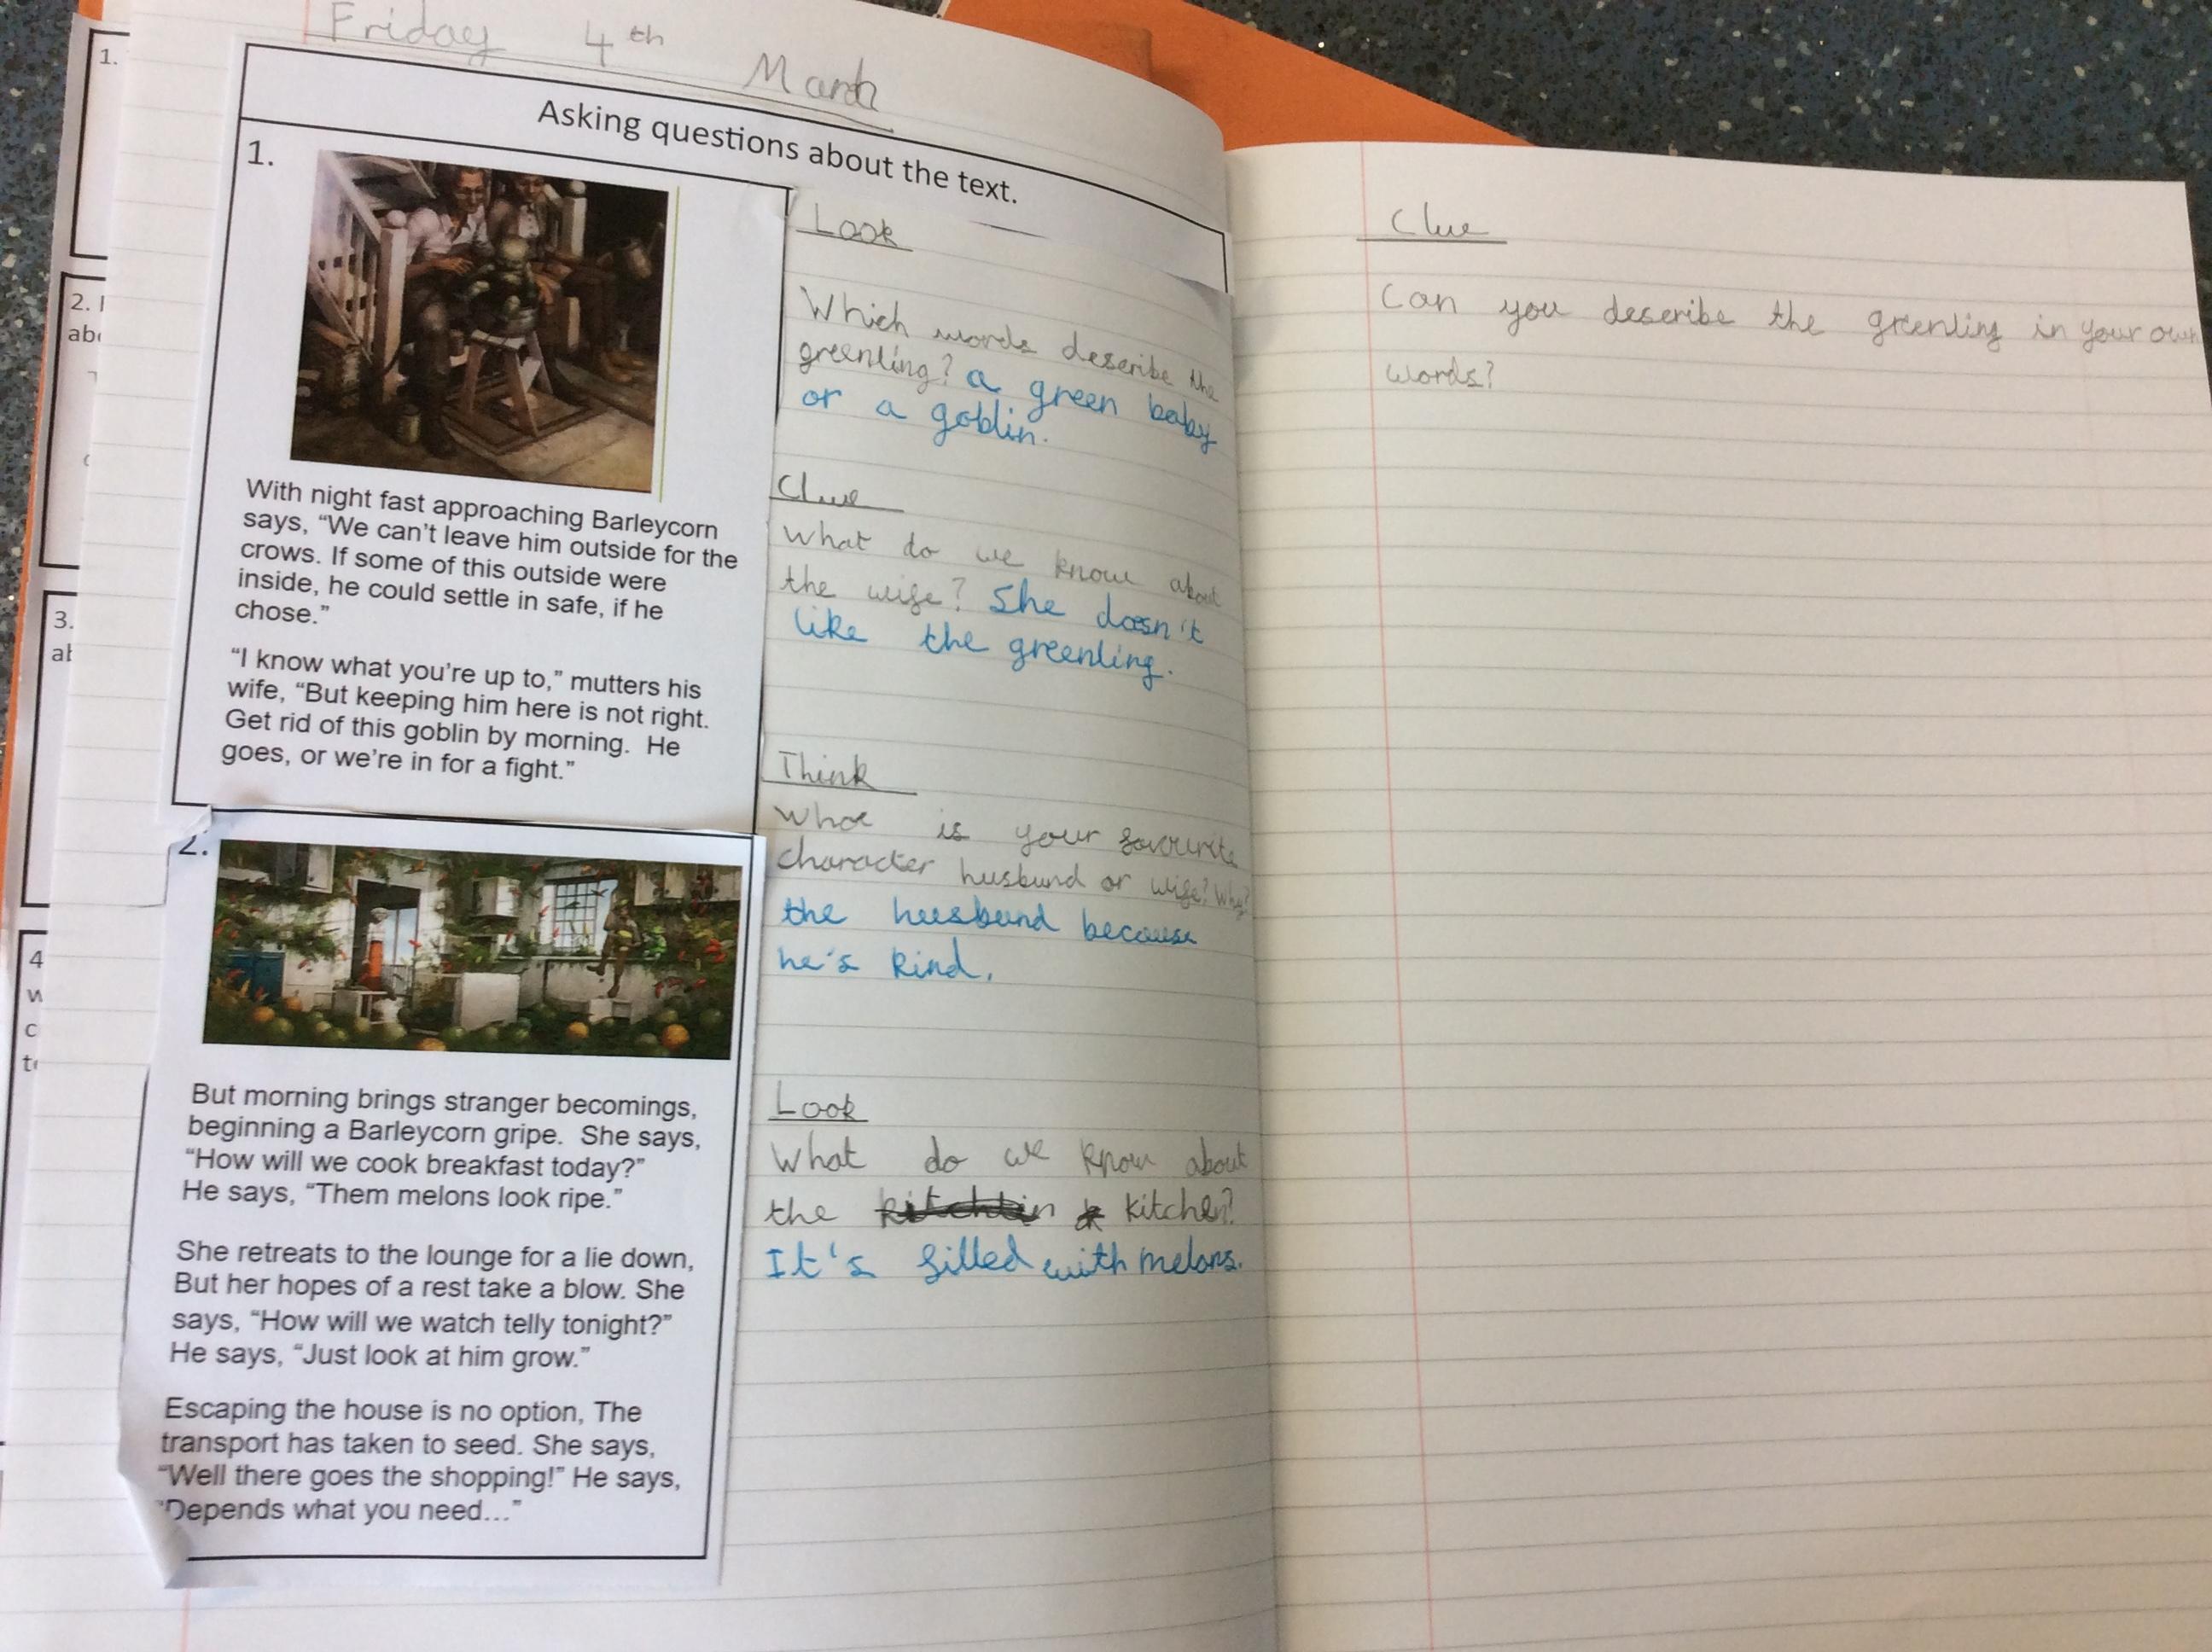 Friday 4th March
Asking questions about the text.
1.
With night fast approaching Barleycorn
says, “We can’t leave him outside for the
crows. If some of this outside were
inside, he could settle in safe, if he
chose.”
“I know what you’re up to,” mutters his
wife, “But keeping him here is not right.
Get rid of this goblin by morning. He
goes, or we’re in for a fight.”
2.
But morning brings stranger becomings,
beginning a Barleycorn gripe. She says,
“How will we cook breakfast today?”
He says, “Them melons look ripe.”
She retreats to the lounge for a lie down,
But her hopes of a rest take a blow. She
says, “How will we watch telly tonight?”
He says, “Just look at him grow.”
Escaping the house is no option, The
transport has taken to seed. She says,
“Well there goes the shopping!” He says,
“Depends what you need...”
Look
Which words describe the
greenling? a green baby
or a goblin.
Clue
What do we know about
the wife? She doesn't
like the greenling.
Think
Whoe is your favourite
character husbund or wife? Why?
the husband because
he's kind.
Look
What do we know about
the kitchen?
It's filled with melons.
Clue
Can you describe the greenling in your own
words?
1.
2. I
abo
3.
ab
4
w
c
to